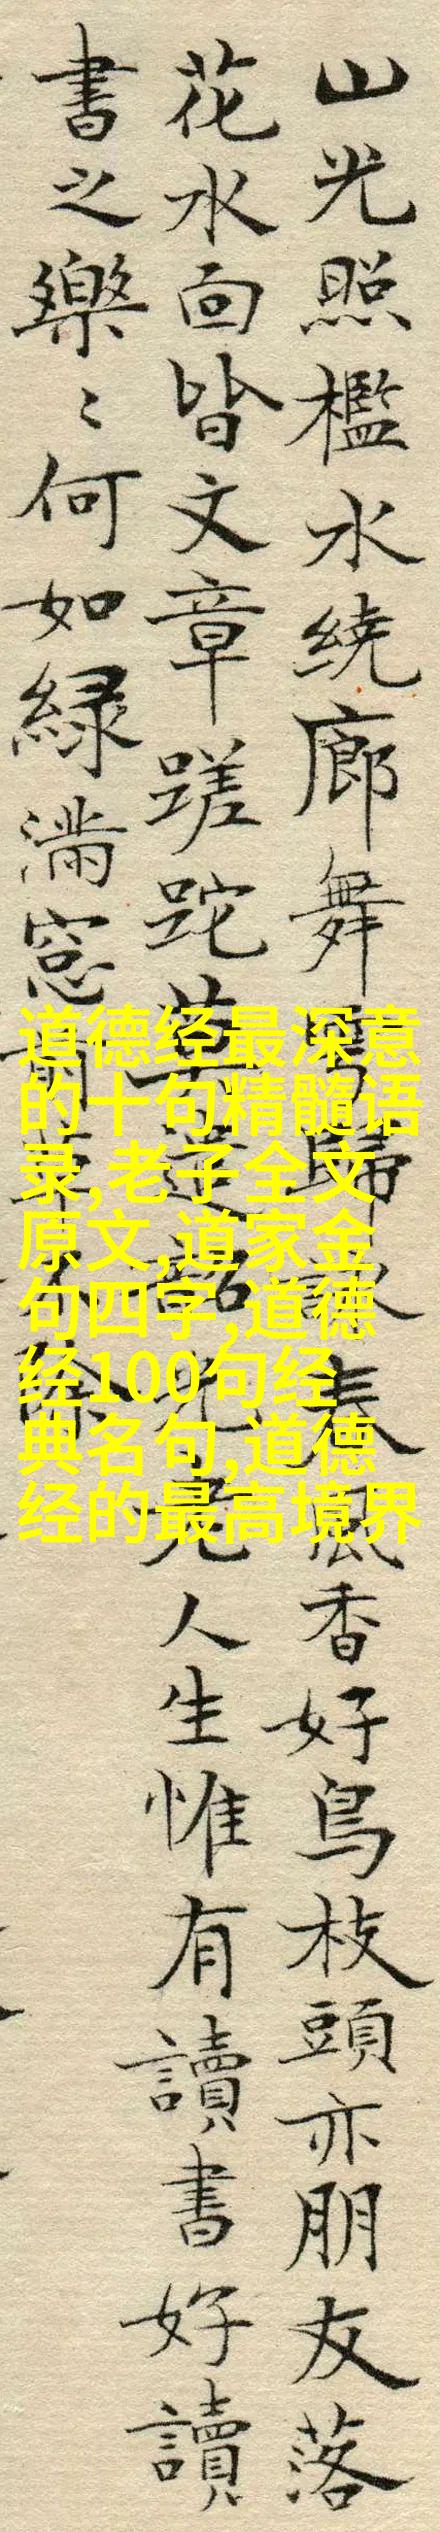 山光照檻水繞廊舞雩歸詠春風香好鳥枝頭亦朋友落
花水面皆文章蹉跎莫遣韶光老人生惟有讀書好讀
書之樂〻何如緑滿窓前草不除
道德经最深意
的十句精髓语
录,老子全文
原文,道家金
句四字,道德
经100句经
典名句,道德
经的最高境界